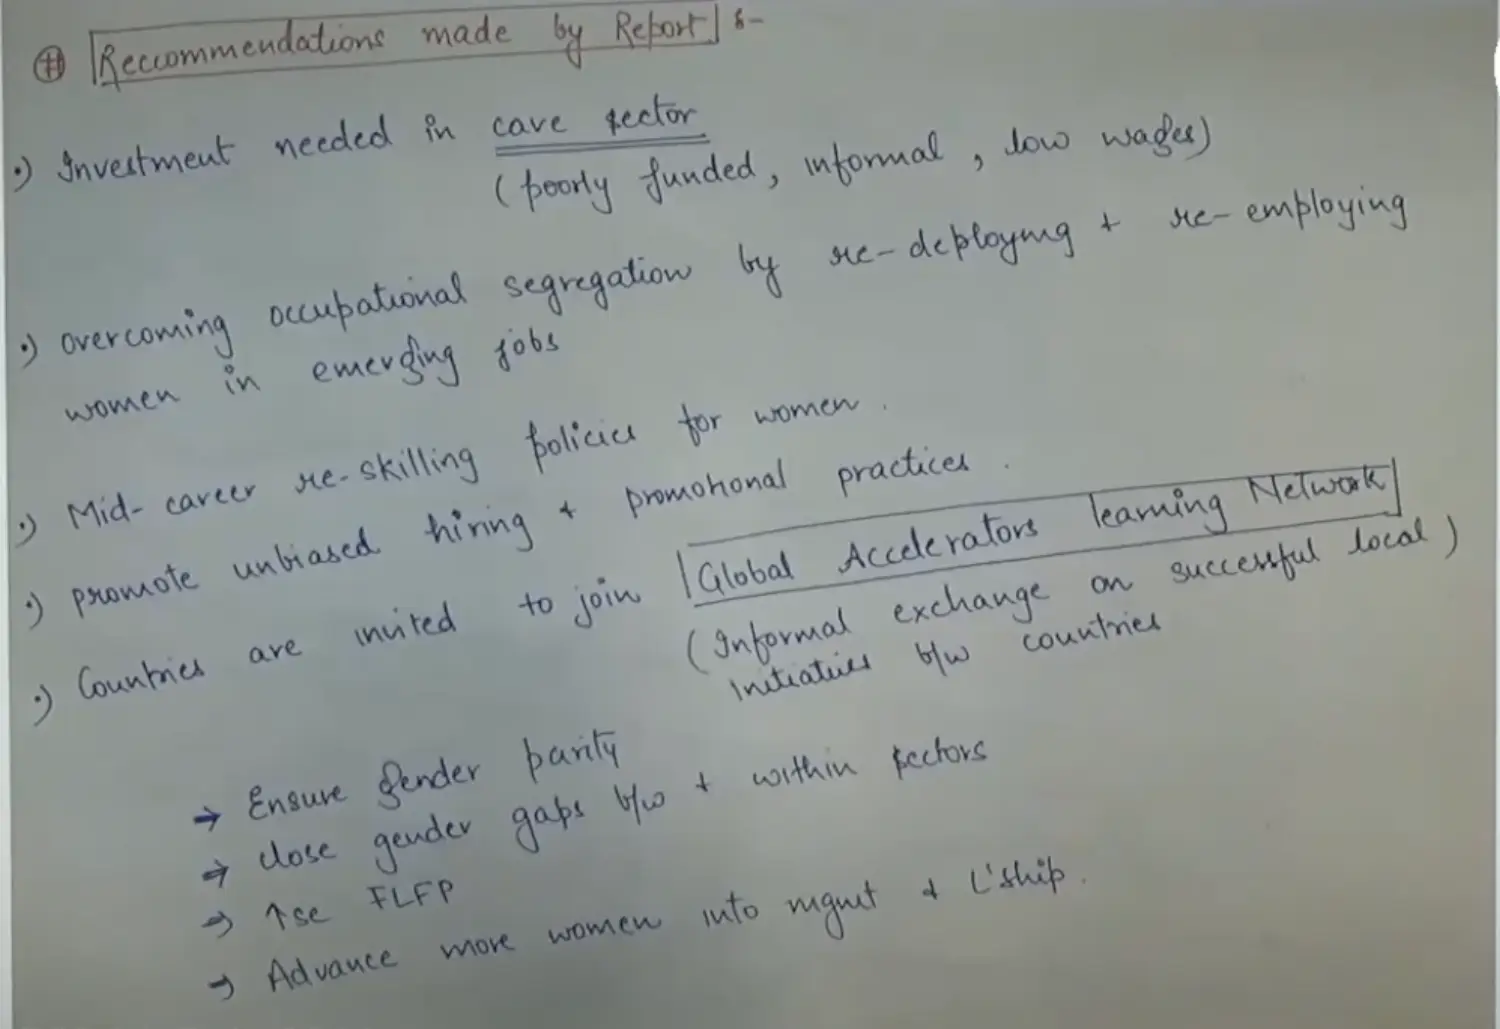 # Reccommendations made by Report :-
•) Investment needed in care sector
(poorly funded, informal, low wages)
•) overcoming occupational segregation by re-deploying + re-employing
women in emerging jobs
•) Mid-career re-skilling policies for women.
•) promote unbiased hiring + promotional practices.
•) Countries are invited to join Global Accelerators learning Network
(Informal exchange on successful local)
initiatives b/w countries
→ Ensure gender parity
→ close gender gaps b/w + within sectors
→ ↑se FLFP
→ Advance more women into mgmt + L'ship.